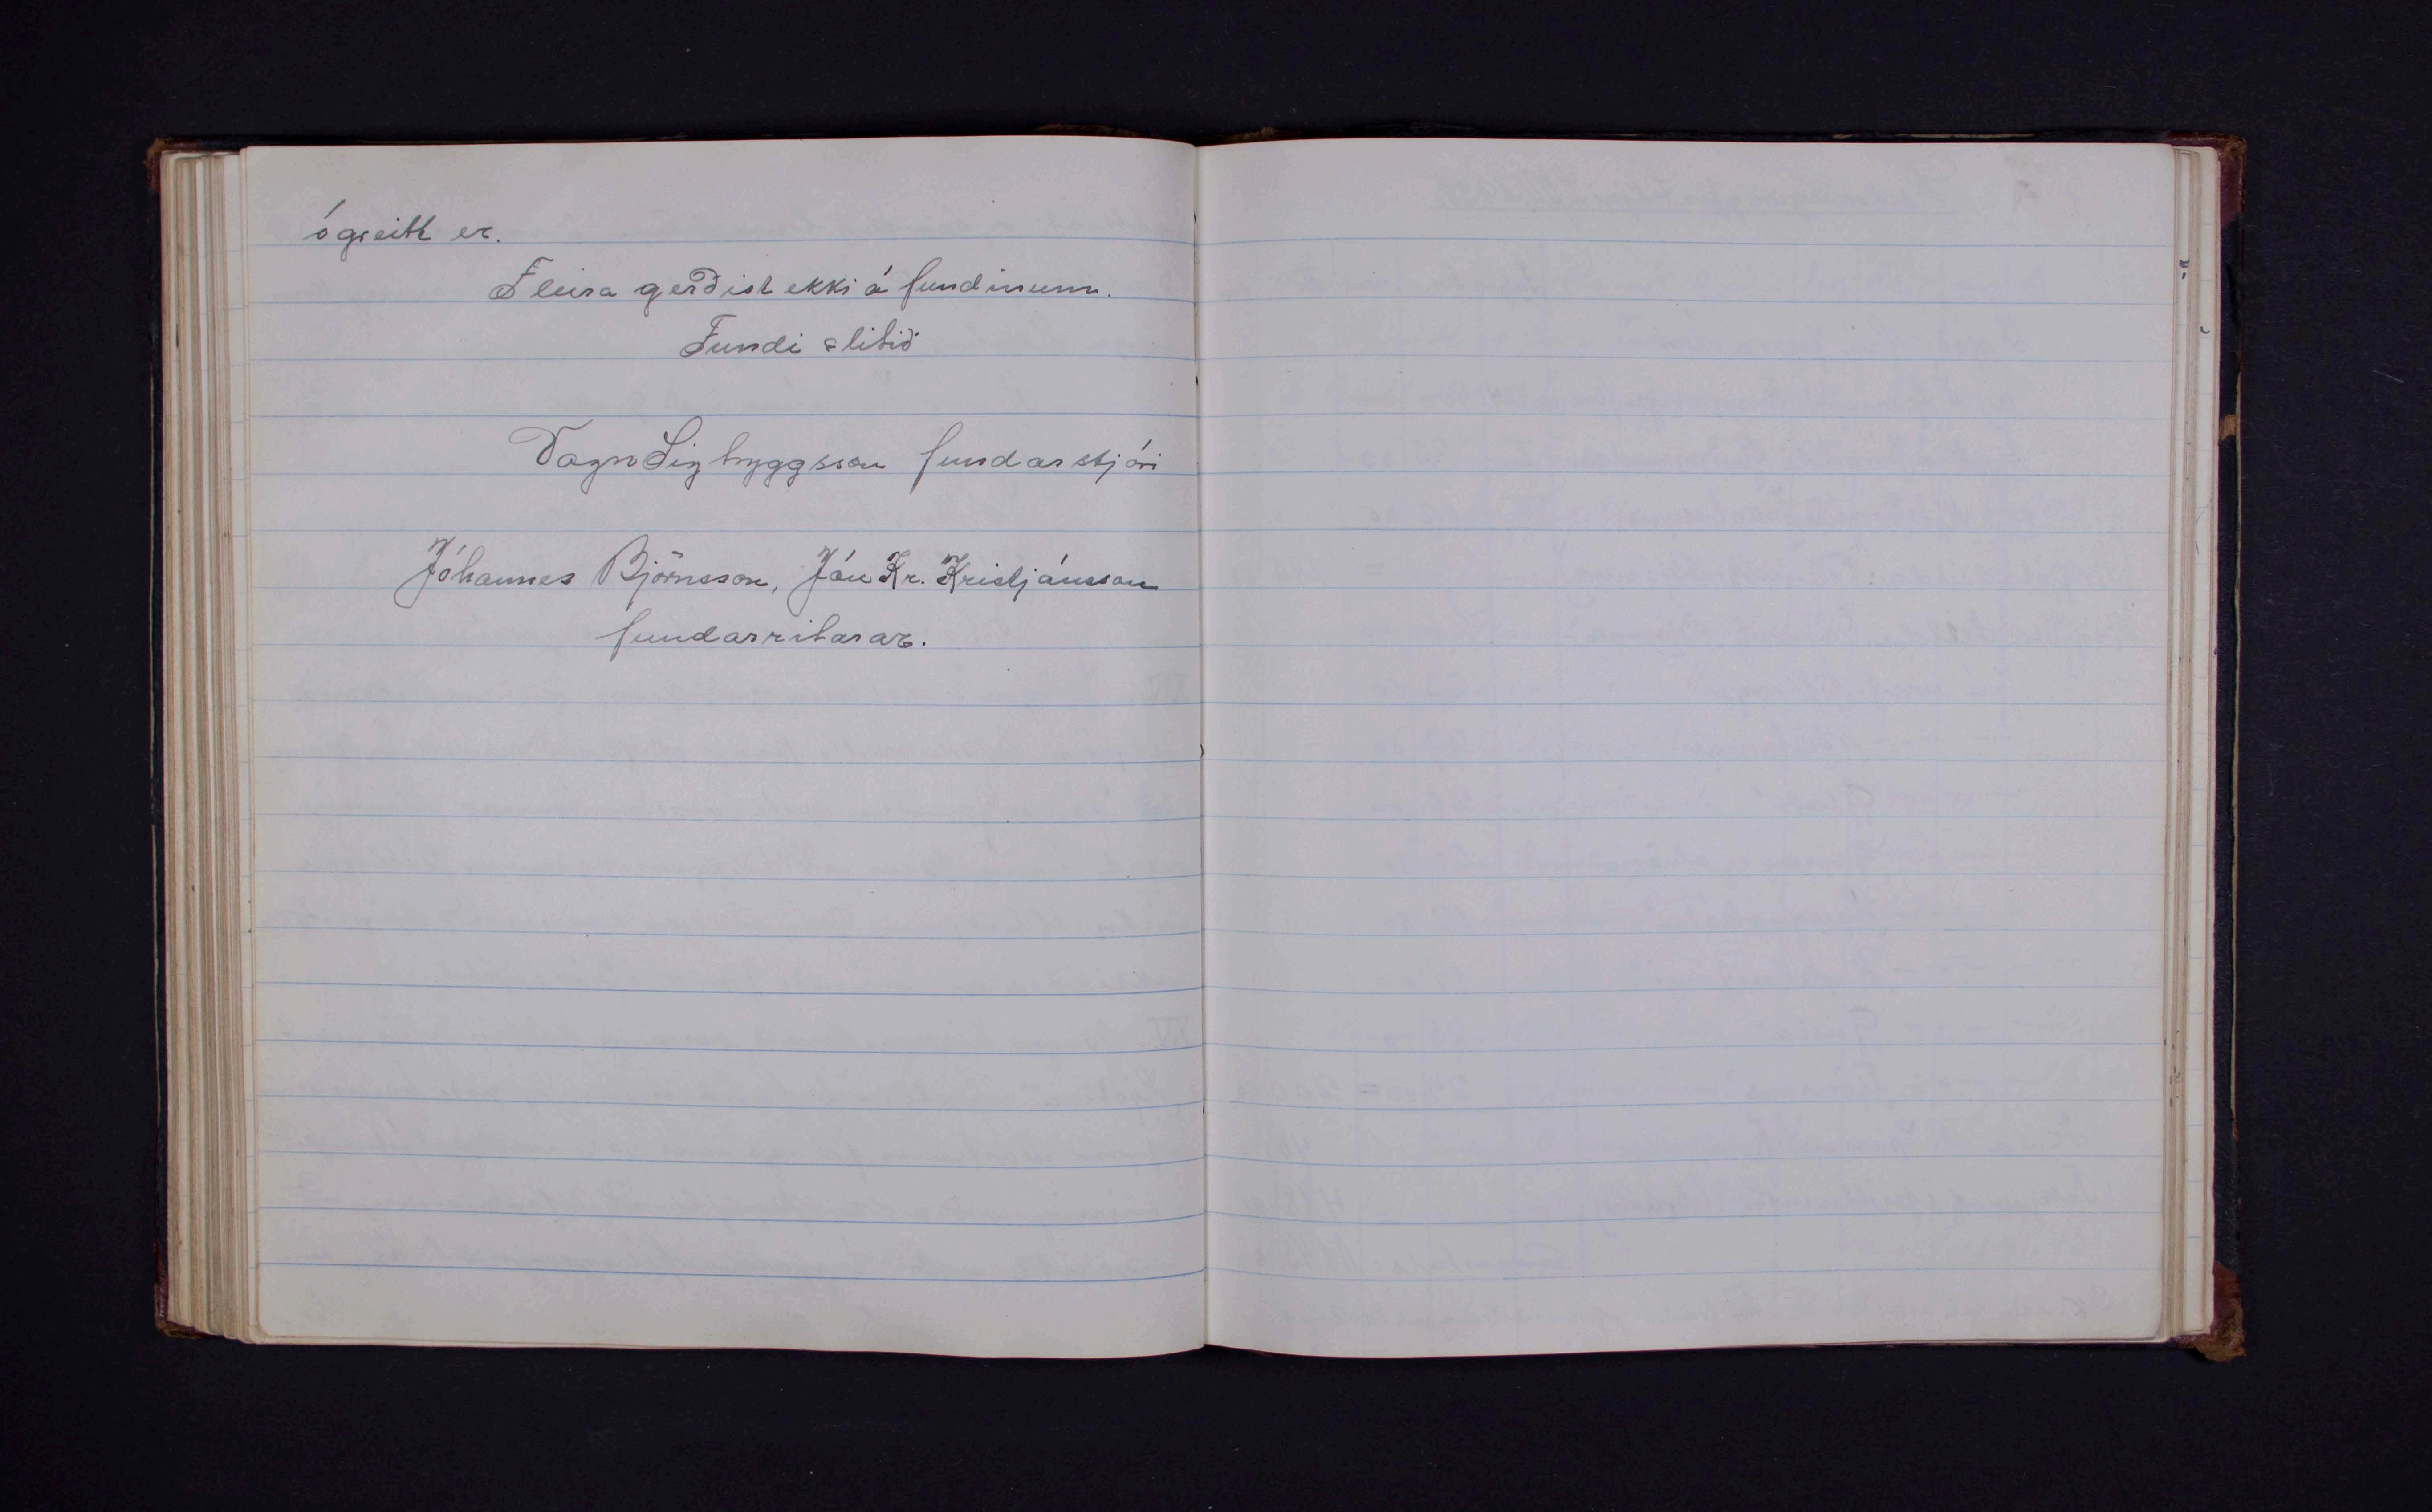 ógreitt er.
Fleira gerðist ekki á fundinum.
Fundi slitið
Vagn Sigtryggsson fundarstjóri
Jóhannes Björnsson, Jón Kr. Kristjánsson
fundarritarar.